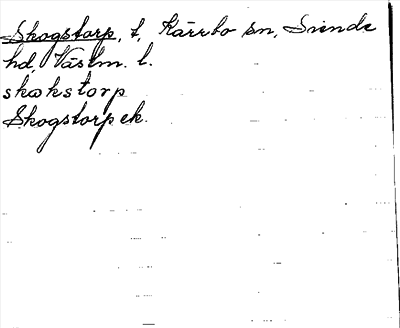 Skogstorp, t, Kärrbo sn, Siende
hd, Västm. l.
skokstorp
Skogstorp ek.